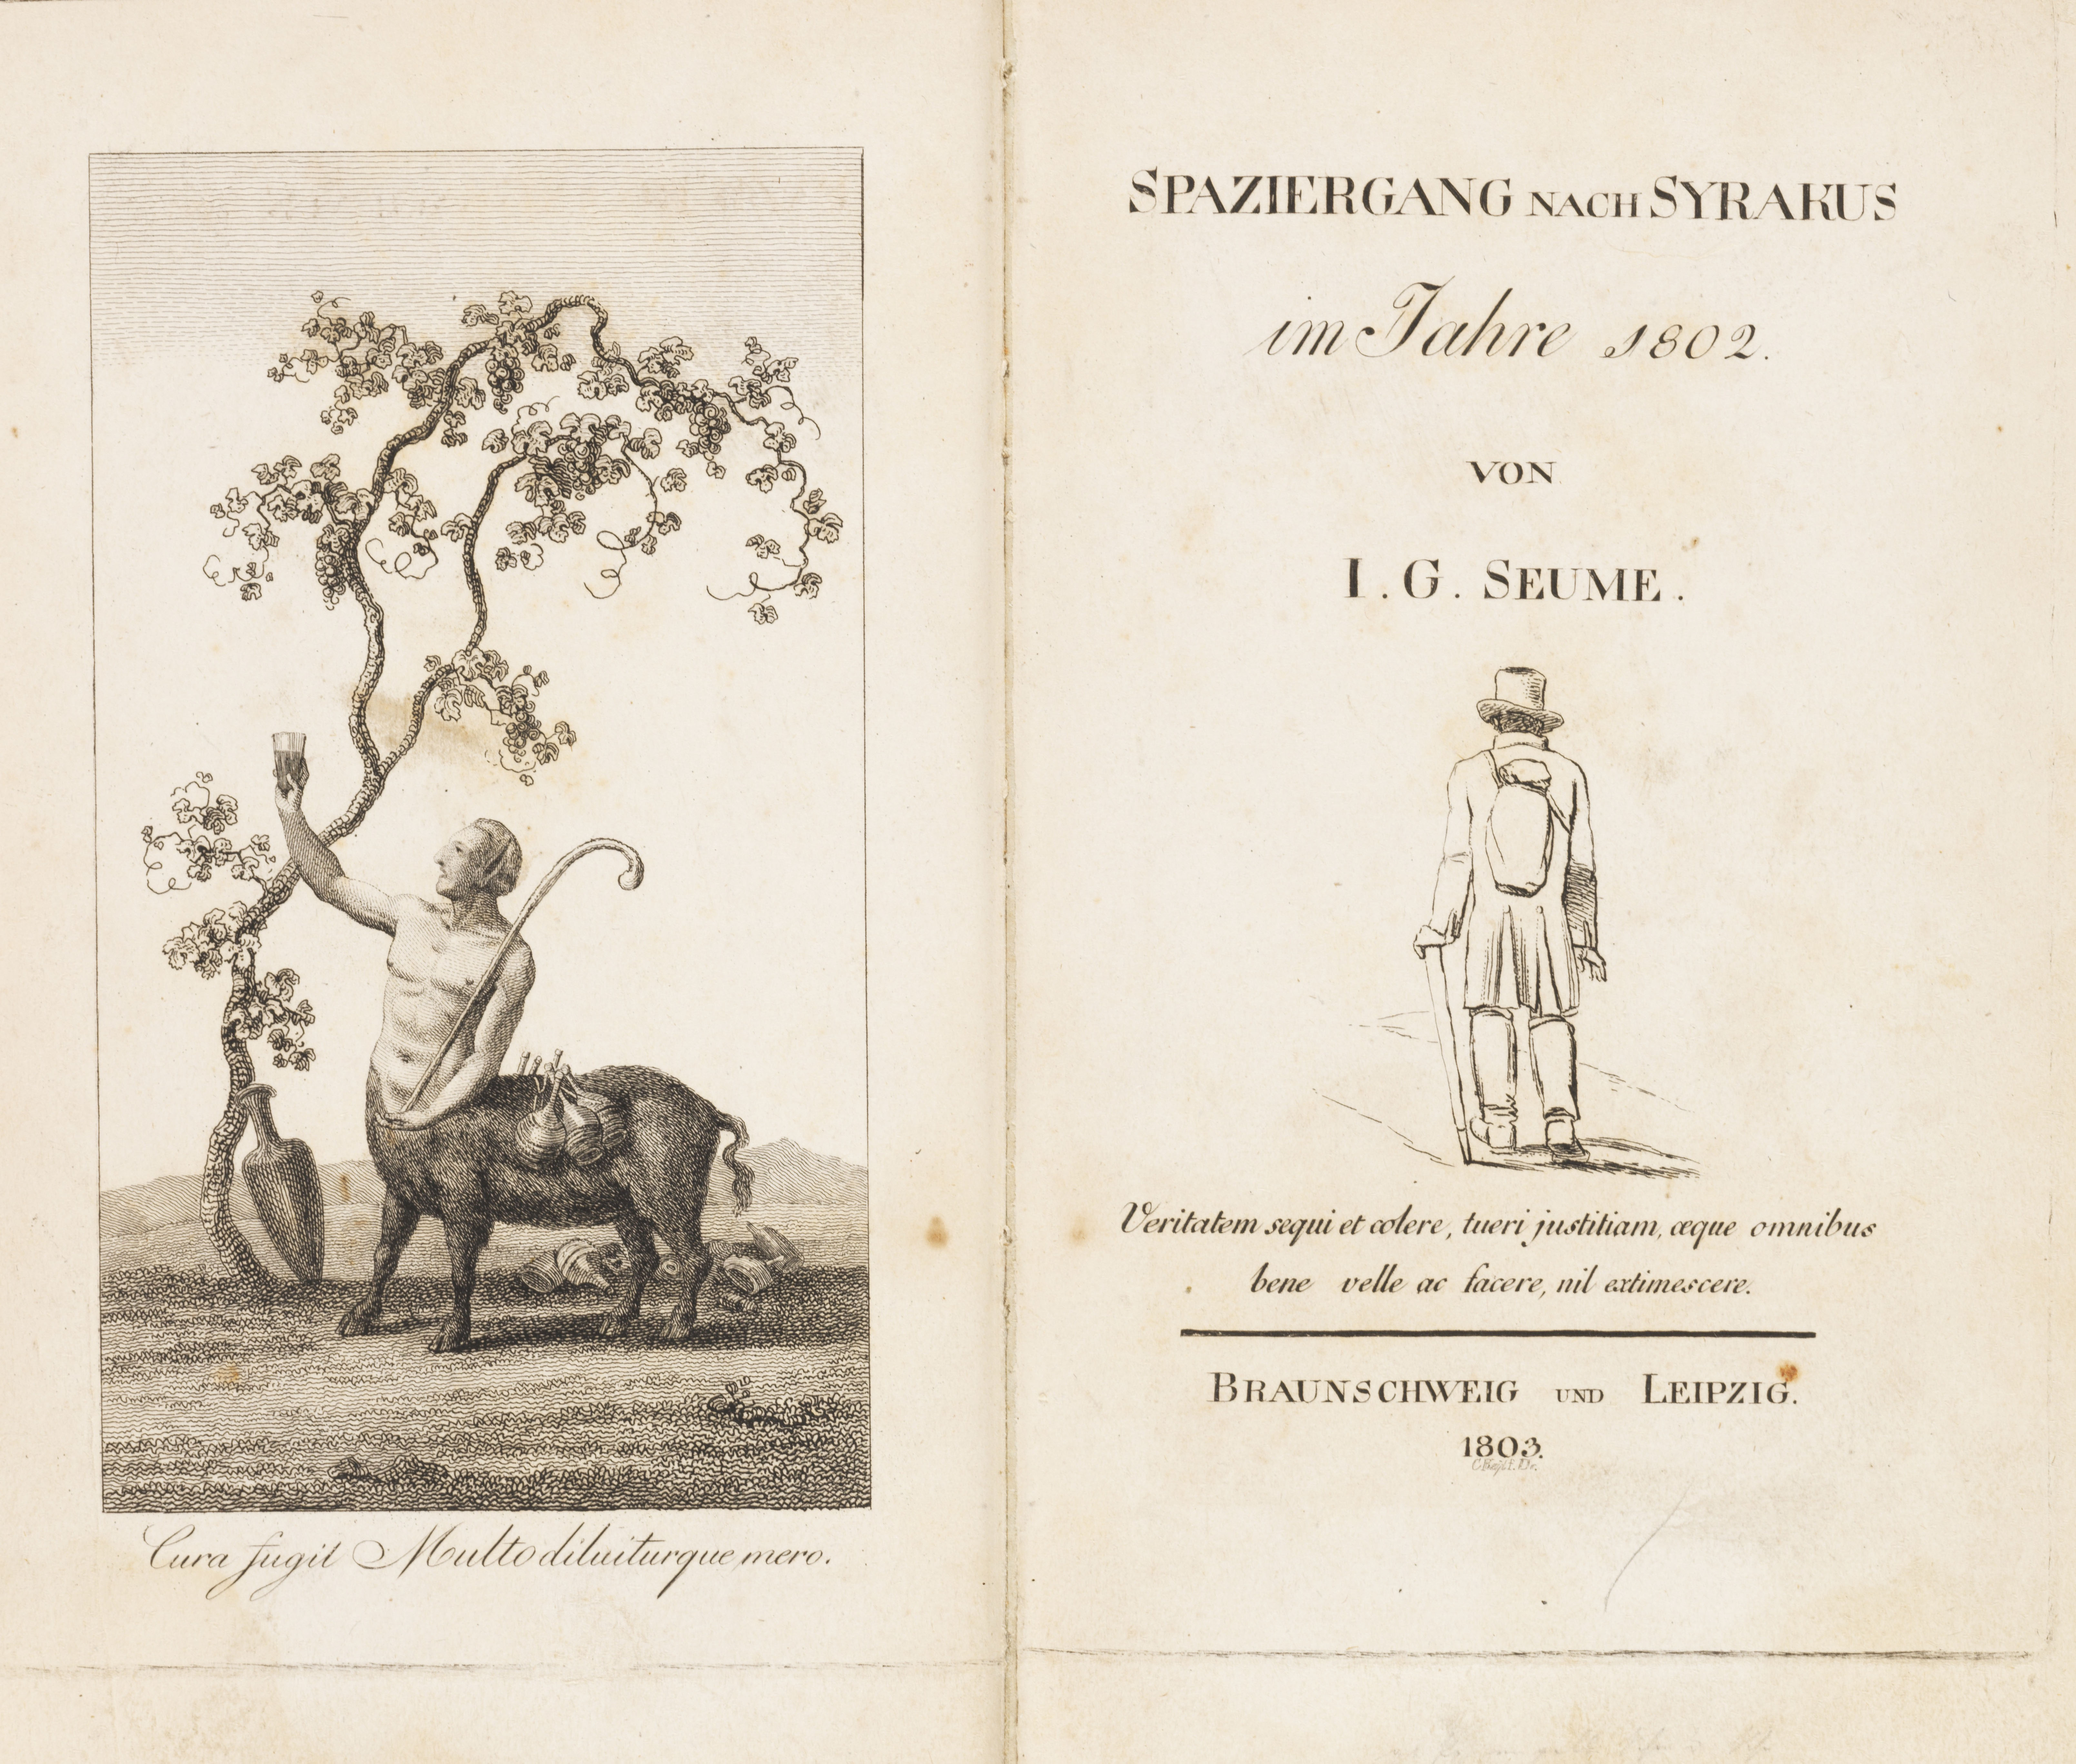 Cura fugit Multo diluiturque mero.
SPAZIERGANG NACH SYRAKUS
im Jahre 1802.
VON
I. G. SEUME.
Veritatem sequi et colere, tueri justitiam, æque omnibus
bene velle ac facere, nil extimescere.
BRAUNSCHWEIG UND LEIPZIG.
1803.